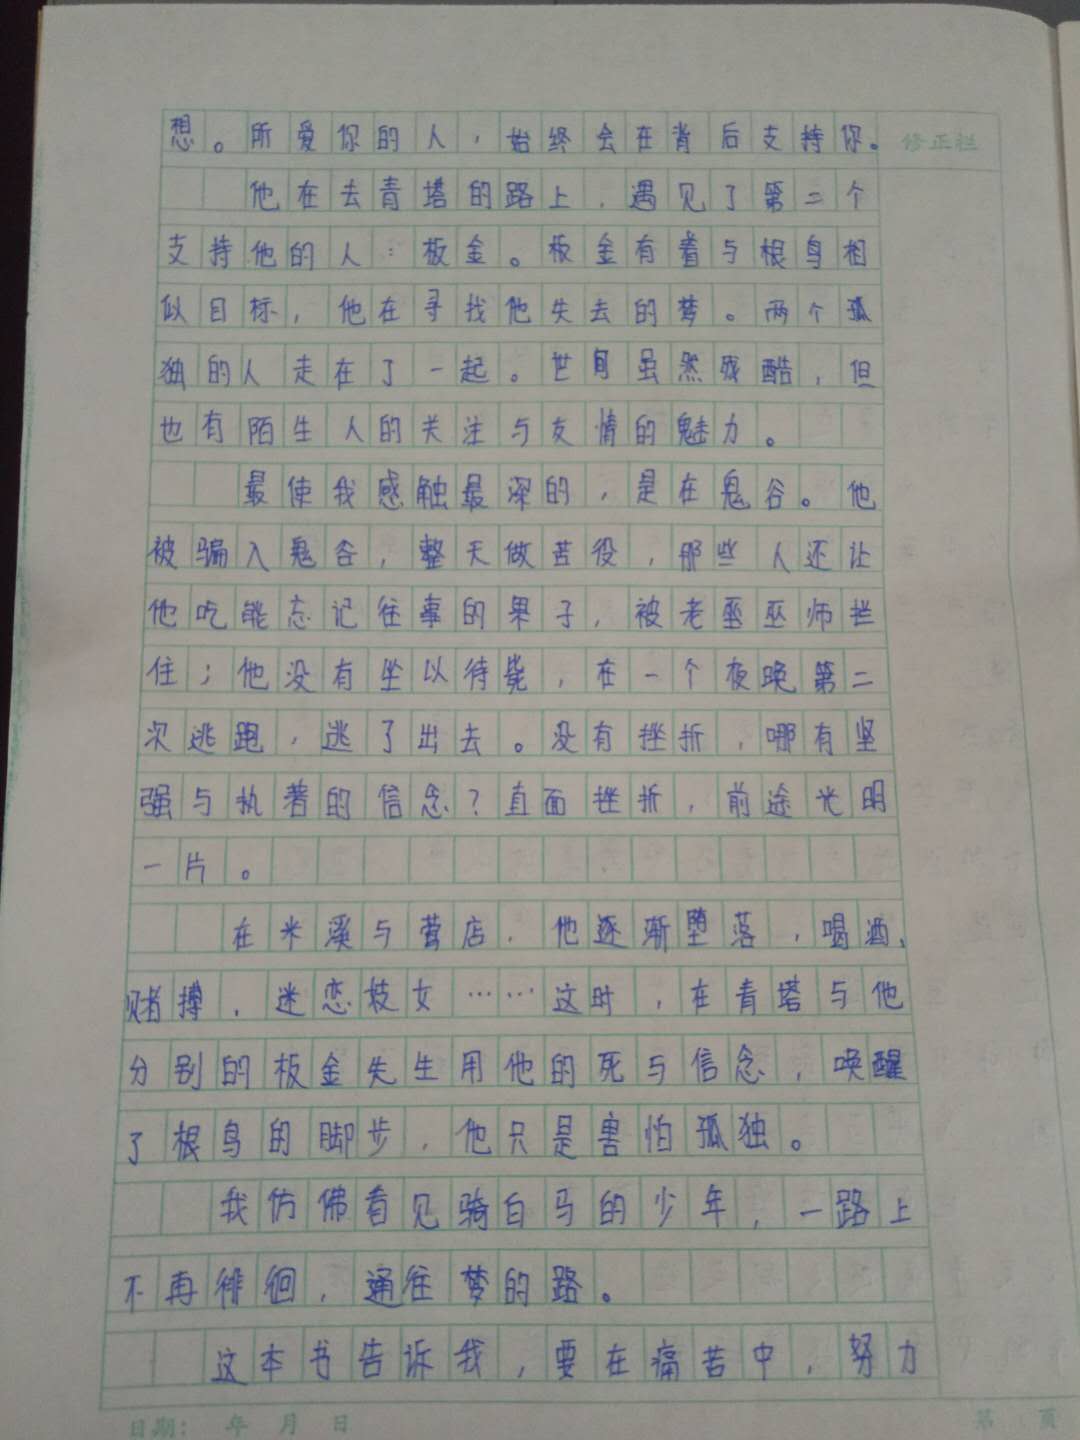 想。所爱你的人，始终会在背后支持你。
修正栏
他在去青塔的路上，遇见了第二个
支持他的人：板金。板金有着与根鸟相
似目标，他在寻找他失去的梦。两个孤
独的人走在了一起。世间虽然残酷，但
也有陌生人的关注与友情的魅力。
最使我感触最深的，是在鬼谷。他
被骗入鬼谷，整天做苦役，那些人还让
他吃能忘记往事的果子，被老巫巫师拦
住；他没有坐以待毙，在一个夜晚第二
次逃跑，逃了出去。没有挫折，哪有坚
强与执著的信念？直面挫折，前途光明
一片。
在米溪与莺店，他逐渐堕落，喝酒、
赌搏，迷恋枝女……这时，在青塔与他
分别的板金先生用他的死与信念，唤醒
了根鸟的脚步，他只是害怕孤独。
我仿佛看见骑白马的少年，一路上
不再徘徊，通往梦的路。
这本书告诉我，要在痛苦中，努力
日期： 年 月 日
第 页